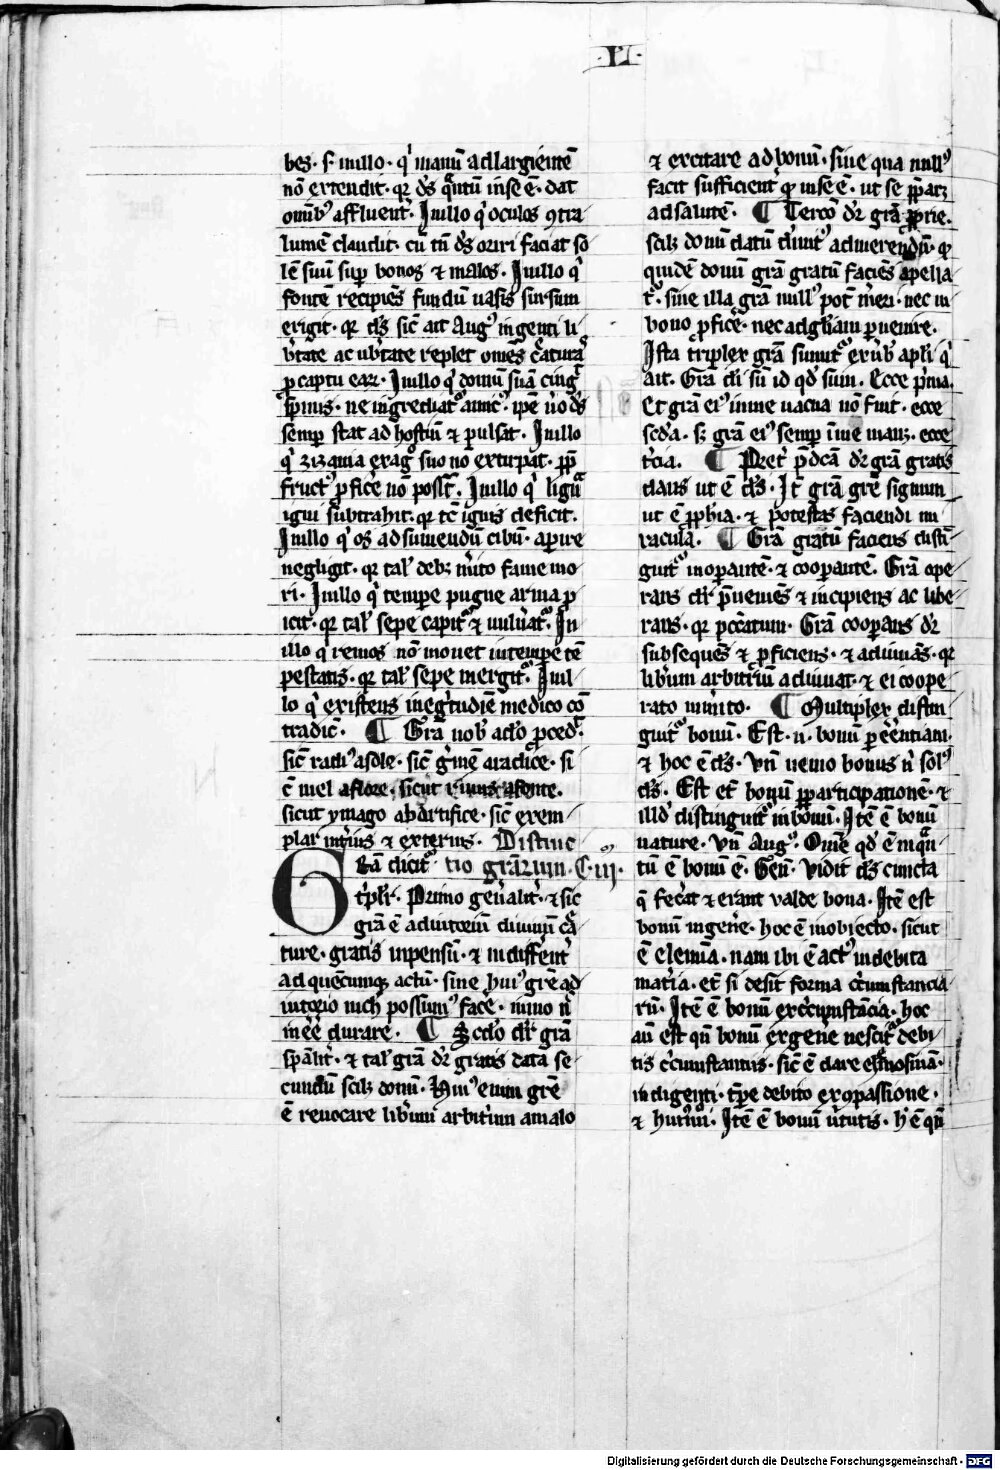 ·V·
bet̉. s̉ in illo· qͥ manū ad largientē
nō extendit· qꝛ dꝰs qͣntū in se ē· dat
omībꝰ affluent̉· In illo qͥ oculos ꝯtra
lumē claudit· cū tn̄ dꝰs oriri faciat so
lē suū suꝑ bonos ⁊ malos· In illo qͥ
fontē recipiēs fundū uasis sursum
erigit· qꝛ dꝰs sic̄ ait Augꝰ ingenti li
b̉tate ac ub̉tate replet om̄s c̉aturaͣ
ꝑ captu eaꝝ· In illo qͥ domū suā cing̉
spinis· ne ingrediatᷣ amicꝰ· ip̄e ū̉o dꝰs
semꝑ stat ad hostiū ⁊ pulsat· In illo
qͥ zizania ex agͦ suo nō extirpat· ꝓp̄
fructꝰ ꝓfic̉e nō poss̄t· In illo qͥ lignū
igni subtrahit· qꝛ tc̄ ignis deficit·
In illo qͥ os ad sumendū cibū· aperire
negligit· qꝛ tal̉ debꝫ m̉ito fame mo
ri· In illo qͥ tempe pugne arma ꝓ
icit· qꝛ tal̉ sepe capitᷣ ⁊ uuln̉atᷣ· In
illo qͥ remos nō mouet in tempe tē
pestatis· qꝛ tal̉ sepe mergitᷣ· In il
lo qͥ existens in eg̉tudīe medico cō
tradic̄· ¶ Gr̄a nob̉ a dō ꝓcedit·
sic̄ radiꝰ a sole· sic̄ g̉mē a radice· si
c̄ mel a flore· sicut riuus a fonte·
sicut ymago ab artifice· sic̄ exem
plar int̉ius ⁊ exterius· Distinc
tio gr̄arum· C· iij·
GRā dicitᷣ
t̉pl̉r· Primo gen̉alit̉· ⁊ sic
gr̄a ē adiutoriū diuinū c̉a
ture· gratis inpensū· ⁊ indiffēnt̉
ad quēcumqꝫ actū· sine huiꝰ gr̄e ad
iutorio nich̉ possumꝰ fac̉e· immo n̉
in eē durare· ¶ Scd̉o dr̄ gr̄a
sp̄alit̉· ⁊ tal̉ gr̄a dr̄ gratis data se
cundū scilꝫ donū· Huiꝰ enim gr̄e
ē reuocare lib̉um arbitrium a malo
⁊ excitare ad bonū· sine qua nullꝰ
facit sufficient̉ qͩ in se ē· ut se p̄paret
ad salutē· ¶ Tercō dr̄ gr̄a ꝓprie·
scilꝫ donū datū diuinitꝰ ad merendū· qͩ
quidē donū gr̄a gratū faciēs apella
tᷣ· sine illa gr̄a nullꝰ pot̄ m̉eri· nec in
bono ꝓfic̉e· nec ad gl̄iam ꝑuenire·
Ista triplex gr̄a sumitᷣ ex ūb̉ apl̄i qͥ
ait· Gr̄a dī sū id qd̉ sum· Ecce pͥma·
Et gr̄a eiꝰ in me uacua nō fuit· ecce
scd̄a· sꝫ gr̄a eiꝰ semꝑ in me manꝫ· ecce
t̉cia· ¶ Pret̉ p̄dcā dr̄ gr̄a gratis
dans ut ē dꝰs· It̄ gr̄a gr̄e signum
ut ē ꝓph̄ia· ⁊ potestas faciendi mi
racula· ¶ Gr̄a gratū faciens disti
guitᷣ in oꝑantē· ⁊ cooꝑantē· Gr̄a ope
rans dr̄ p̄ueniēs ⁊ incipiens ac libe
rans· qꝛ pccātum· Gr̄a cooꝑans dr̄
subsequēs ⁊ ꝓficiens· ⁊ adiuuās· qꝛ
lib̉um arbitriū adiuuat· ⁊ ei coope
rato in m̉ito· ¶ Multiplex distin
guitᷣ bonū· Est· n̄· bonū ꝑ eēntiam·
⁊ hoc ē dꝰs· Vn̄ nemo bonus n̉ solꝰ
dꝰs· Est et̄ bonū ꝑ participationē· ⁊
illd̉ distinguitᷣ in bonū· Itē ē bonū
nature· vn̄ Augꝰ· Om̄e qd̉ ē inqͣn
tū ē bonū ē· Gen̄· Vidit dꝰs cuncta
q̄ fec̉at ⁊ erant valde bona· Itē est
bonū in gen̉e· hoc ē in obiecto· sicut
ē elemīa· nam ibi ē actꝰ in debita
mat̉ia· et̄ si desit forma circumstancia
rū· Itē ē bonū ex circumstācia· hoc
au̅ est qn̄ bonū ex gen̉e uestitᷣ debi
tis circumstantiis· sic̄ ē dare elemosinā·
indigenti· tp̄e debito ex ꝯpassione·
⁊ hꝰmōi· Itē ē bonū ūtutis· hͨ ē qn̄
Digitalisierung gefördert durch die Deutsche Forschungsgemeinschaft · DFG